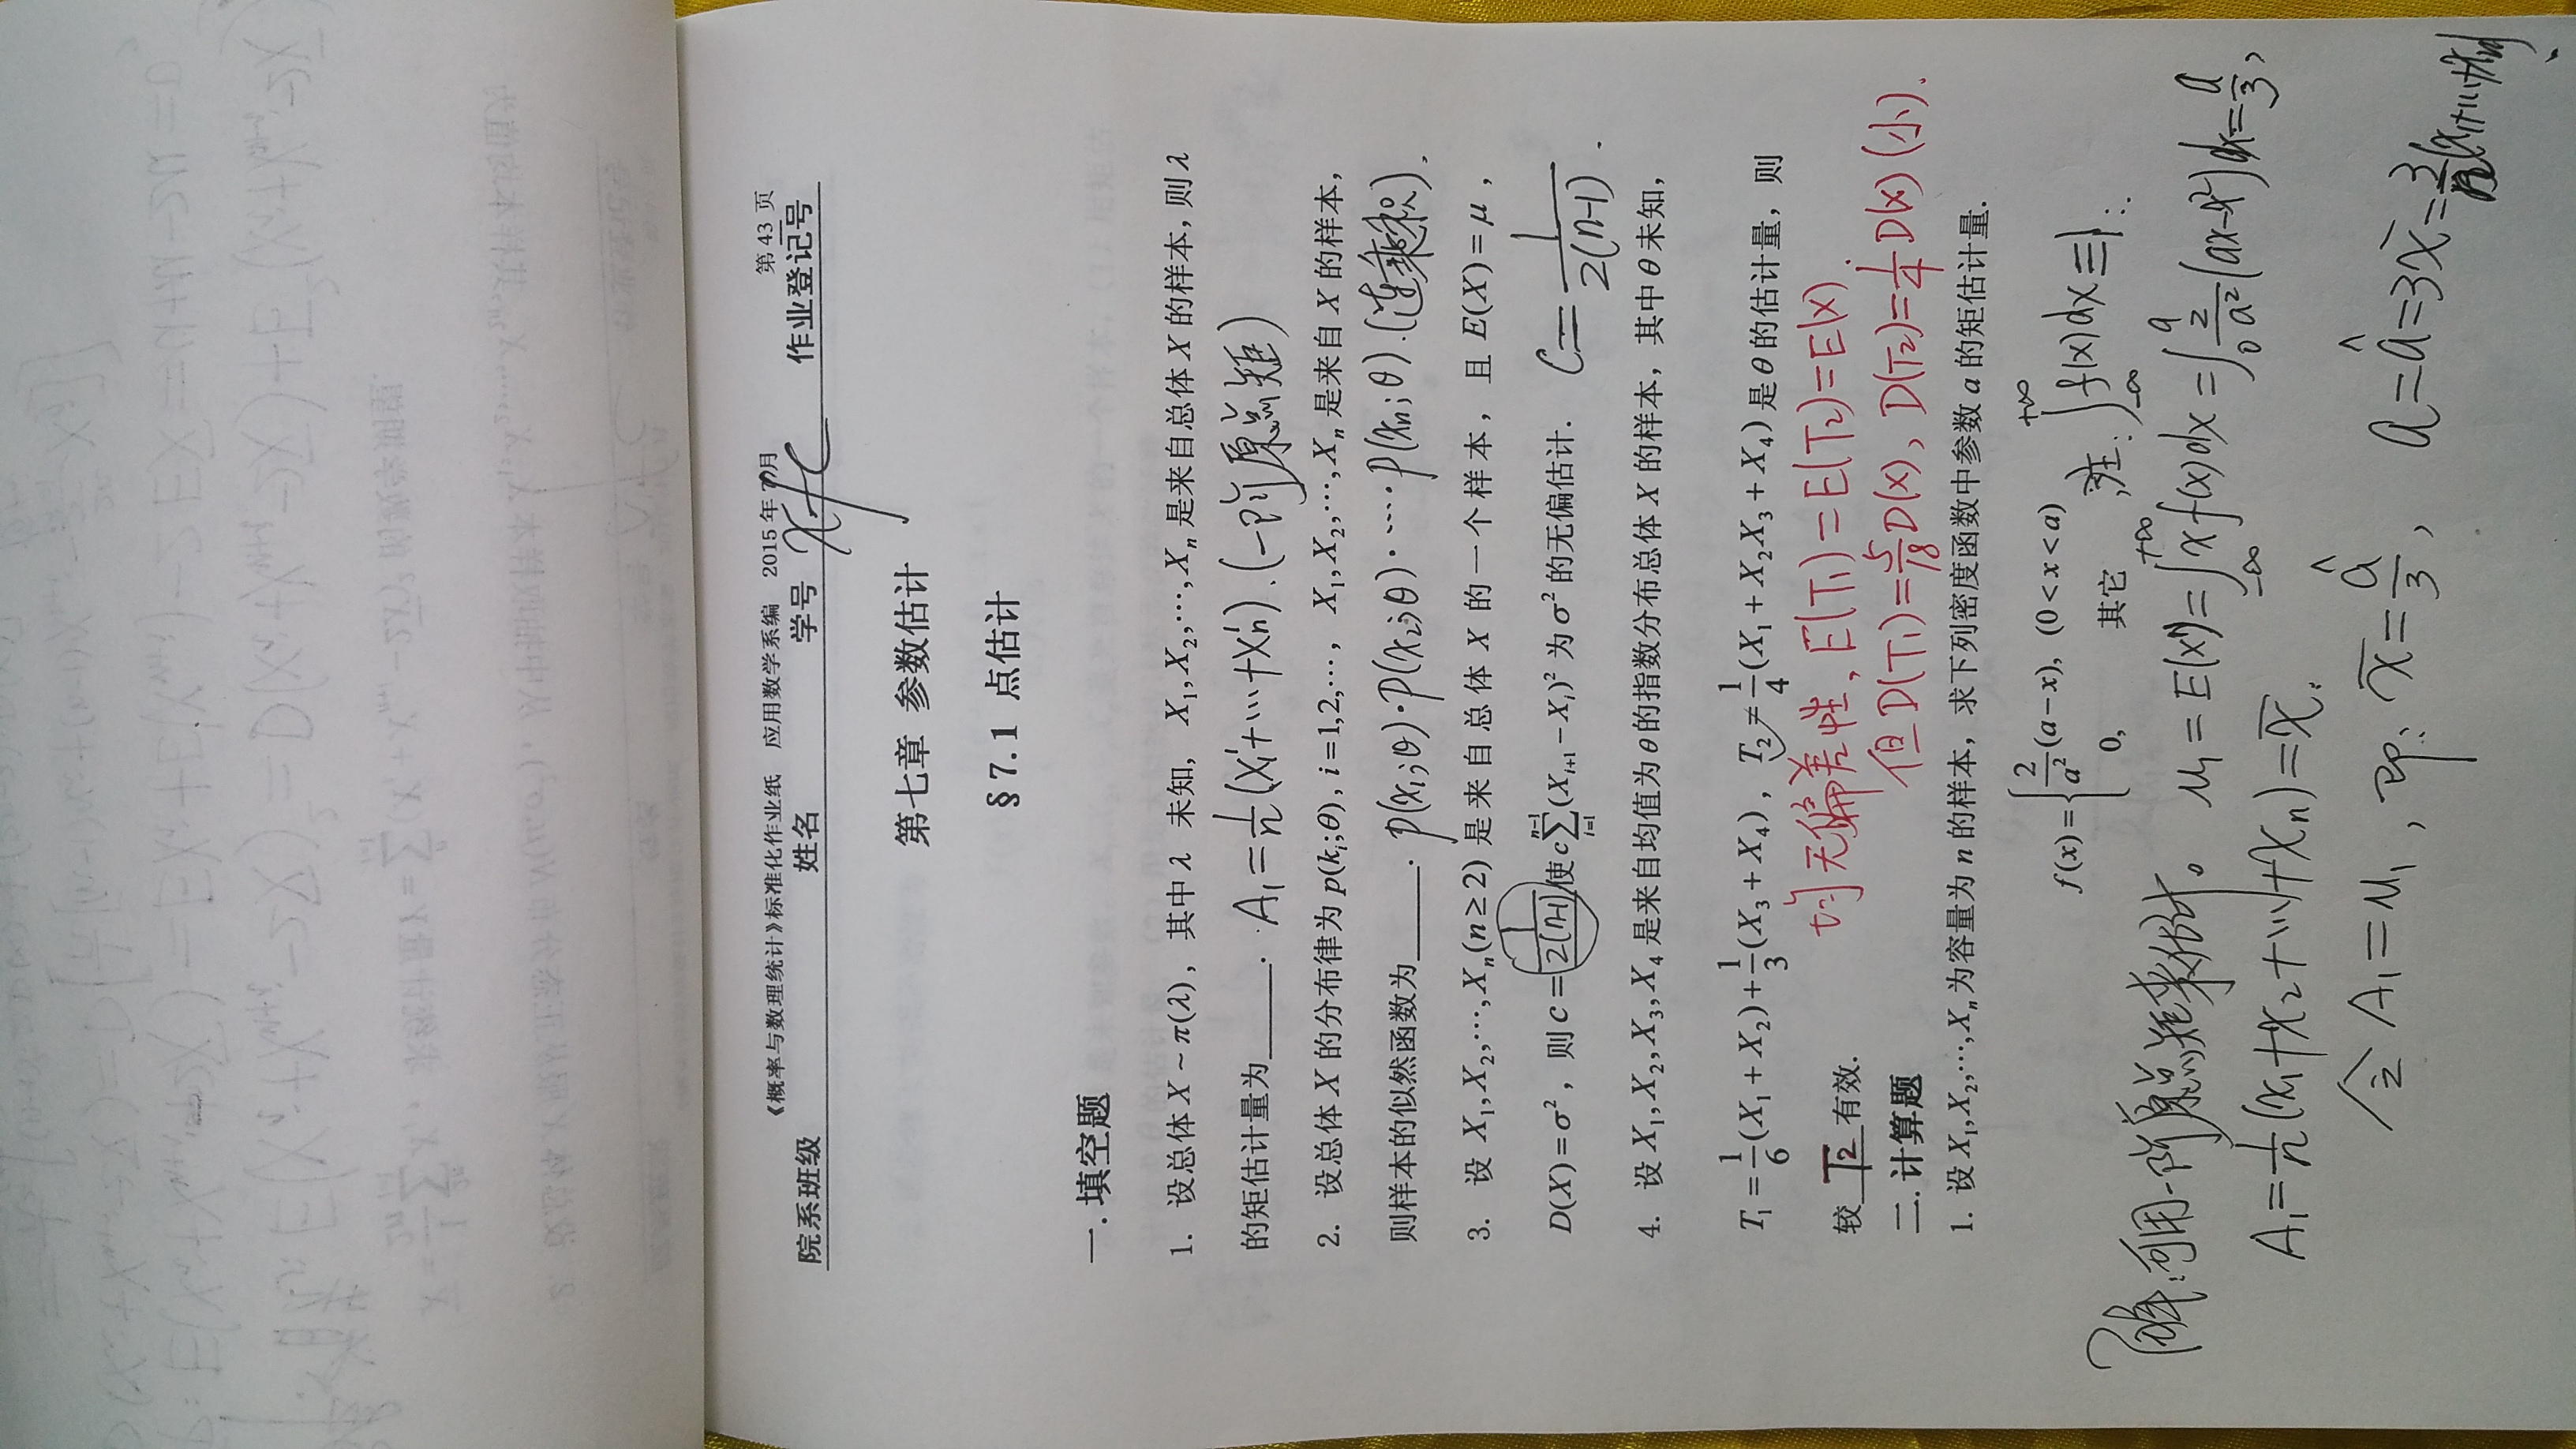 《概率与数理统计》标准化作业纸 应用数学系编 2015年7月 第43页
院系班级 姓名 学号 作业登记号
第七章 参数估计
§7.1 点估计
一.填空题
1. 设总体X~π(λ), 其中λ 未知, X₁,X₂,⋯,Xₙ是来自总体X的样本,则λ
的矩估计量为______. A₁=1/n(X₁¹+⋯+Xₙ¹).(一阶原点矩)
2. 设总体X的分布律为p(kᵢ;θ), i=1,2,⋯, X₁,X₂,⋯,Xₙ是来自X的样本,
则样本的似然函数为______. p(x₁;θ)·p(x₂;θ)·⋯·p(xₙ;θ).(连乘积).
3. 设 X₁,X₂,⋯,Xₙ(n≥2) 是来自总体 X 的一个样本, 且 E(X)=μ,
D(X)=σ², 则c=1/2(n-1)使c∑ᵢ₌₁ⁿ⁻¹(Xᵢ₊₁−Xᵢ)²为σ²的无偏估计. C=1/2(n-1).
4. 设X₁,X₂,X₃,X₄是来自均值为θ的指数分布总体X的样本,其中θ未知,
T₁=1/6(X₁+X₂)+1/3(X₃+X₄), T₂=1/4(X₁+X₂X₃+X₄)是θ的估计量,则
较 T₂ 有效. 均无偏差性, E(T₁)=E(T₂)=E(X).
但D(T₁)=5/18D(X), D(T₂)=1/4D(X)(小).
二.计算题
1. 设X₁,X₂,⋯,Xₙ为容量为n的样本,求下列密度函数中参数a的矩估计量.
f(x)={2/a²(a−x), (0<x<a)
0, 其它 , 注: ∫₋∞⁺∞f(x)dx≡1.
解:可用一阶原点矩来估计。 μ₁=E(X¹)=∫₋∞⁺∞xf(x)dx=∫₀ᵃ2/a²(ax−x²)dx=a/3,
A₁=1/n(x₁+x₂+⋯+xₙ)=x̄.
令A₁=μ₁, 即: x̄=â/3, a=â=3x̄=3/n(x₁+⋯+xₙ).